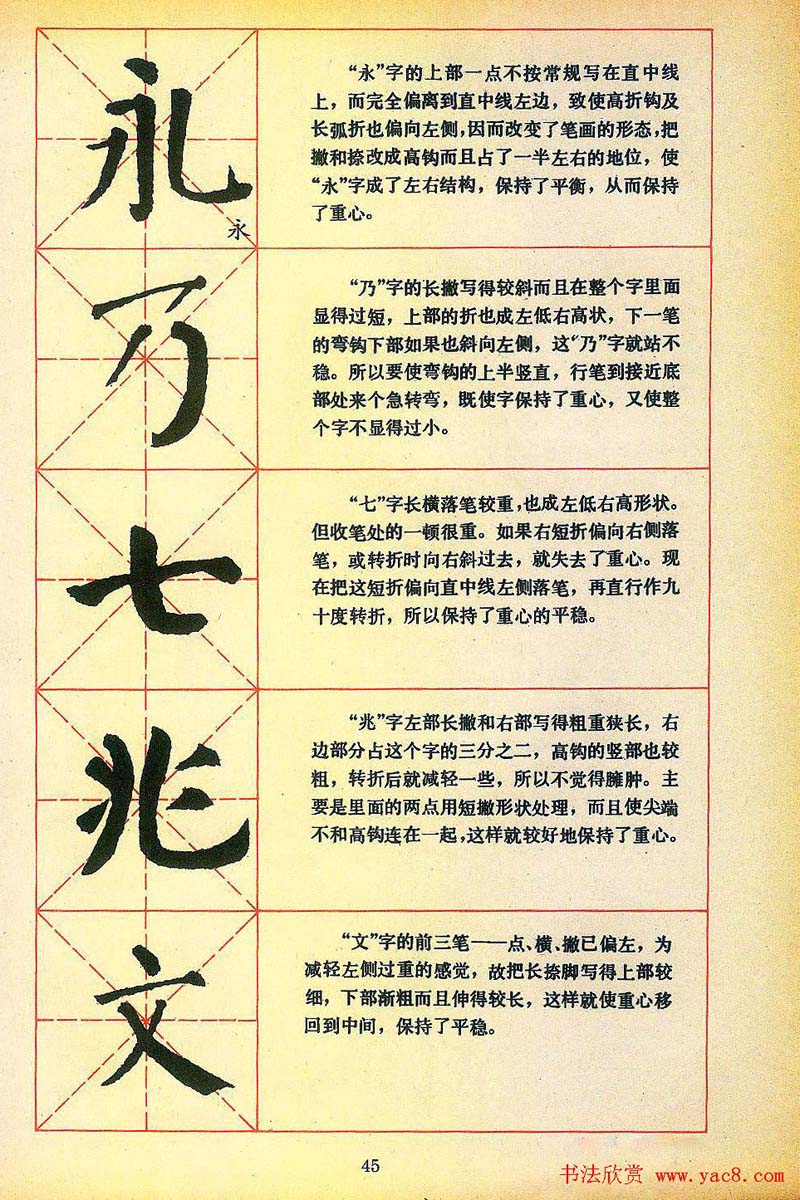 永
永
“永”字的上部一点不按常规写在直中线
上，而完全偏离到直中线左边，致使高折钩及
长弧折也偏向左侧，因而改变了笔画的形态，把
撇和捺改成高钩而且占了一半左右的地位，使
“永”字成了左右结构，保持了平衡，从而保持
了重心。
乃
“乃”字的长撇写得较斜而且在整个字里面
显得过短，上部的折也成左低右高状，下一笔
的弯钩下部如果也斜向左侧，这“乃”字就站不
稳。所以要使弯钩的上半竖直，行笔到接近底
部处来个急转弯，既使字保持了重心，又使整
个字不显得过小。
七
“七”字长横落笔较重，也成左低右高形状。
但收笔处的一顿很重。如果右短折偏向右侧落
笔，或转折时向右斜过去，就失去了重心。现
在把这短折偏向直中线左侧落笔，再直行作九
十度转折，所以保持了重心的平稳。
兆
“兆”字左部长撇和右部写得粗重狭长，右
边部分占这个字的三分之二，高钩的竖部也较
粗，转折后就减轻一些，所以不觉得臃肿。主
要是里面的两点用短撇形状处理，而且使尖端
不和高钩连在一起，这样就较好地保持了重心。
文
“文”字的前三笔——点、横、撇已偏左，为
减轻左侧过重的感觉，故把长捺脚写得上部较
细，下部渐粗而且伸得较长，这样就使重心移
回到中间，保持了平稳。
45
书法欣赏 www.yac8.com